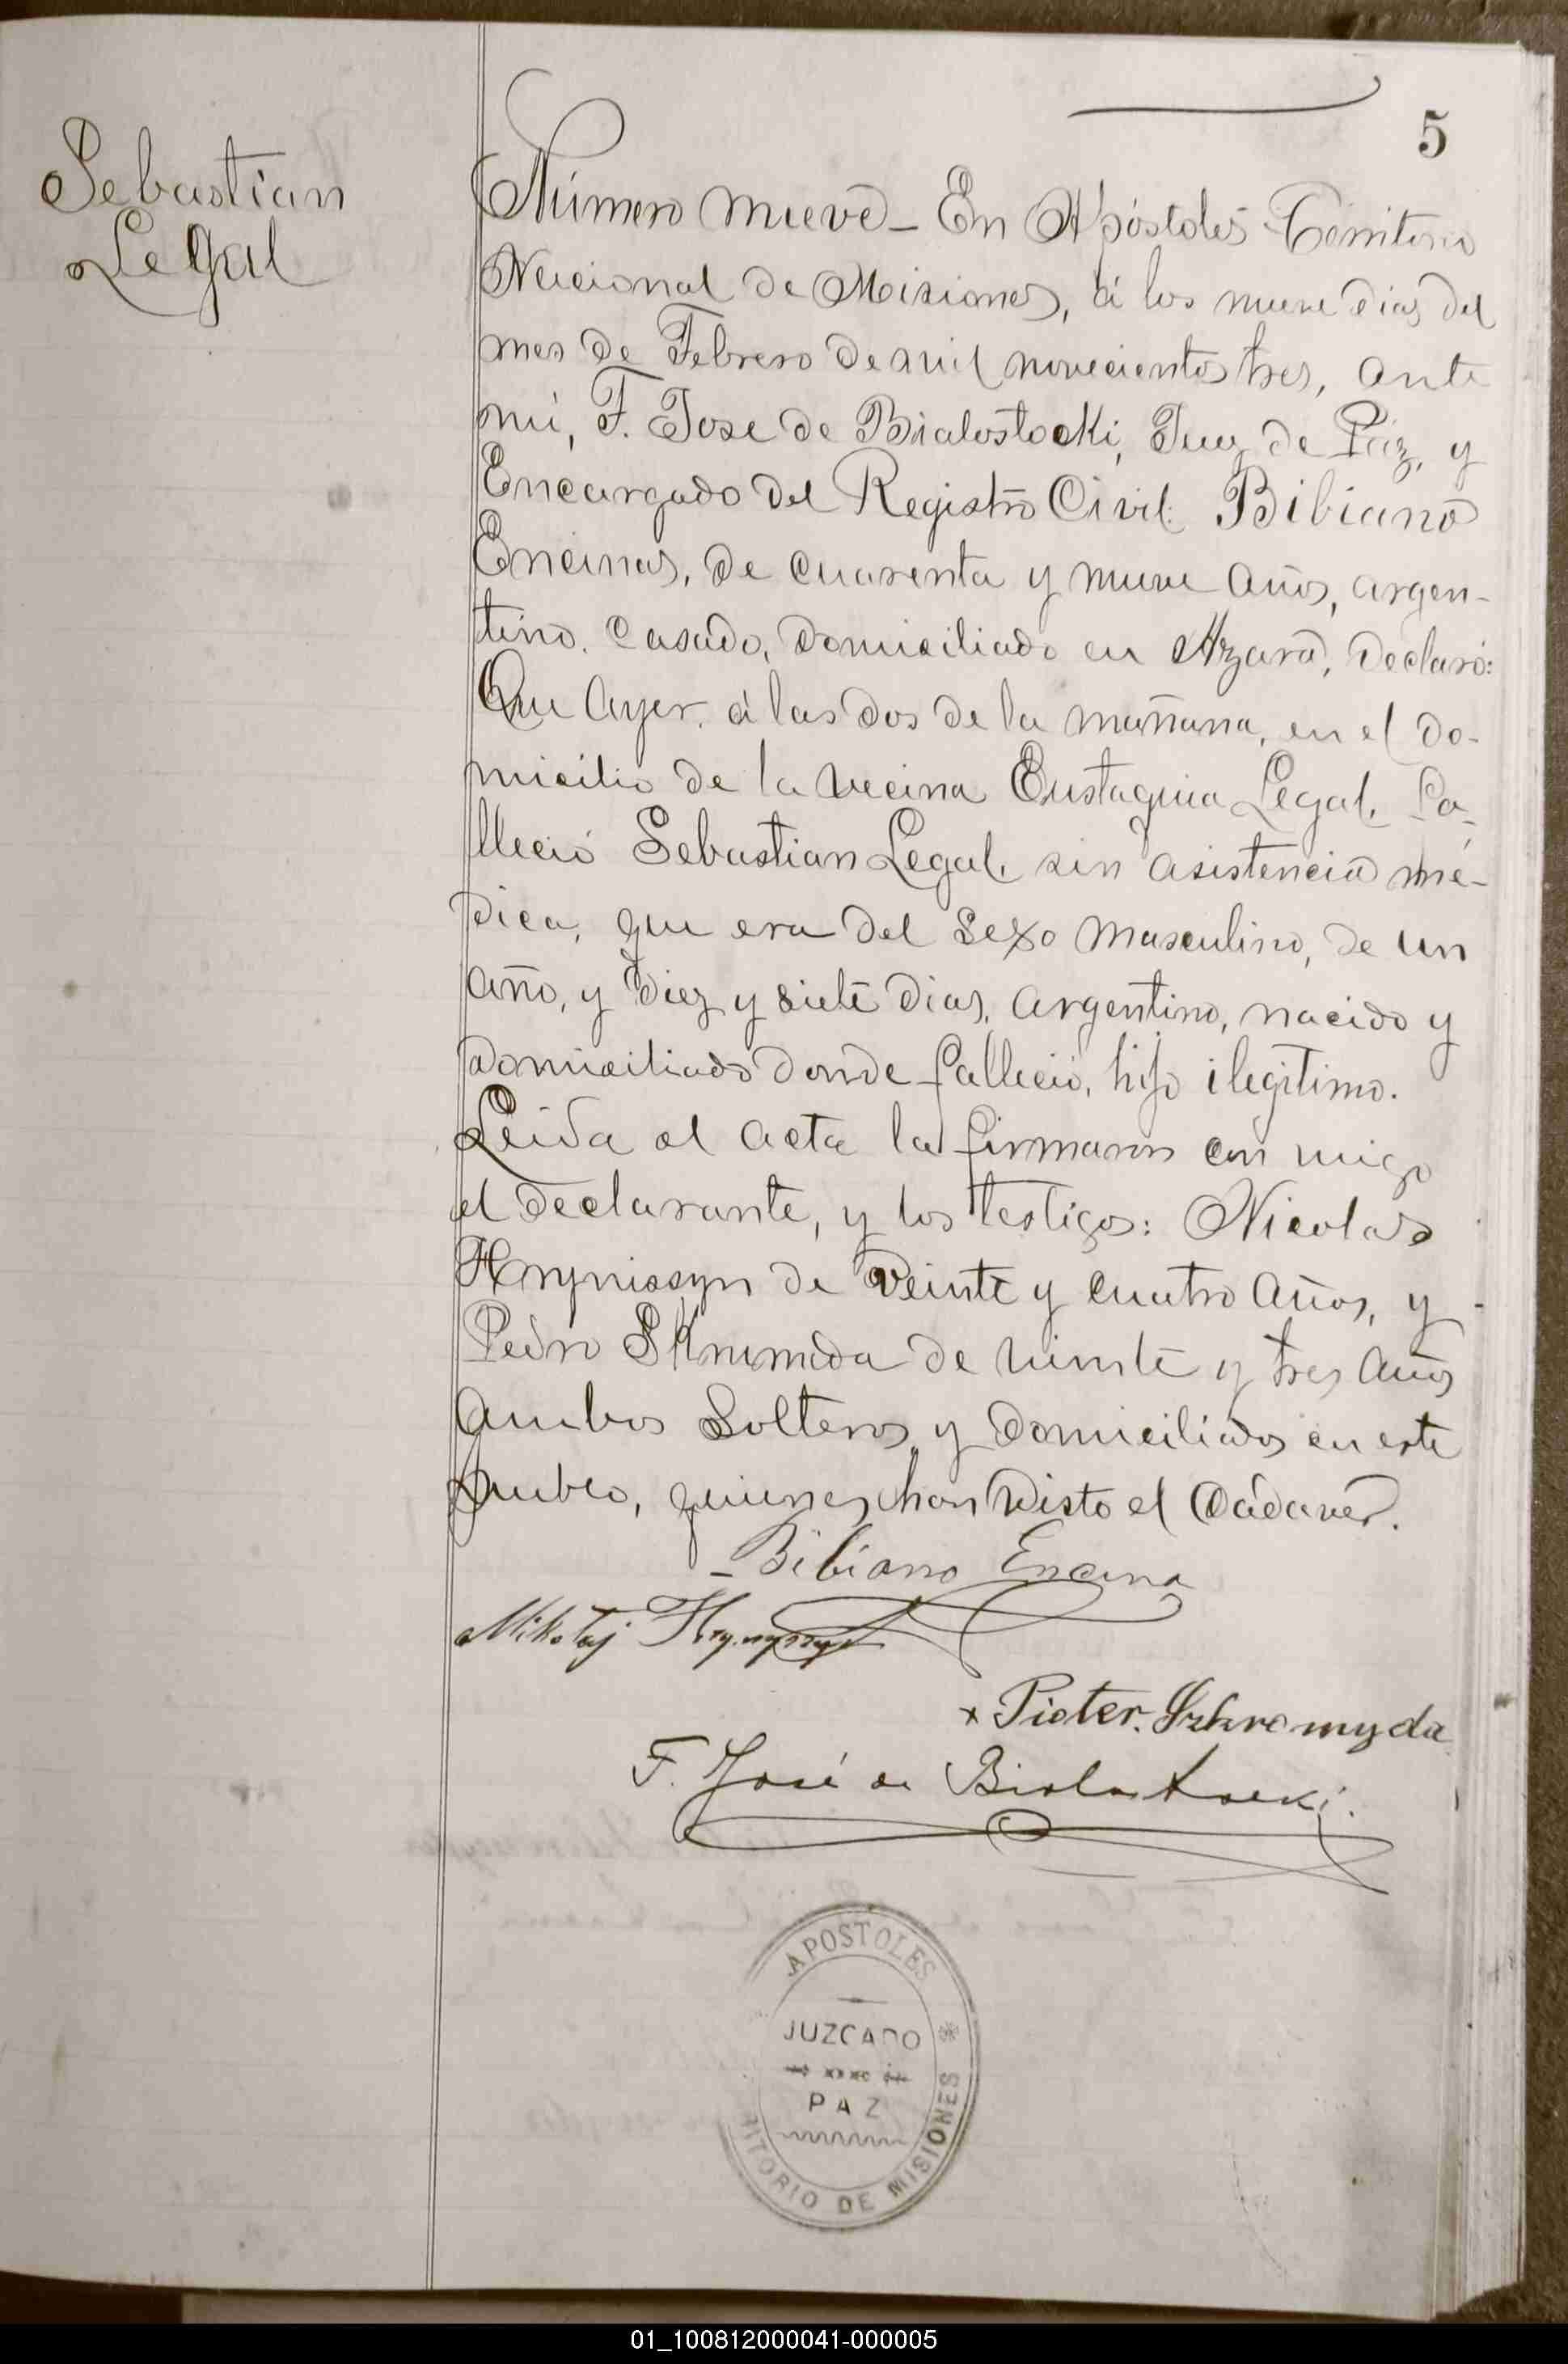 5
Sebastian
Legal
Número nueve_ En Apóstoles Territorio
Nacional de Misiones, á los nueve dias del
mes de Febrero de mil novecientos tres, ante
mí, F. Jose de Bialostocki, Juez de Paz, y
Encargado del Registro Civil: Bibiano
Encinas, de cuarenta y nueve años, argen-
tino. casado, domiciliado en Azara, declaró:
Que ayer, á las dos de la mañana, en el do-
micilio de la vecina Eustaquia Legal, fa-
lleció Sebastian Legal, sin asistencia mé-
dica, que era del sexo masculino, de un
año, y diez y siete dias, argentino, nacido y
domiciliado donde falleció, hijo ilegitimo.
Leida el acta la firmaron con migo
el declarante, y los testigos: Nicolas
Hrynissyn de veinte y cuatro años, y
Pedro Skrumeda de veinte y tres años
ambos solteros y domiciliados en este
pueblo, quienes han visto el cádaver.
Bibiano Encina
Mikołaj
Pioter. Szkromyda
F. José de Bialostocki.
APOSTOLES
JUZGADO
PAZ
RITORIO DE MISIONES
01_100812000041-000005